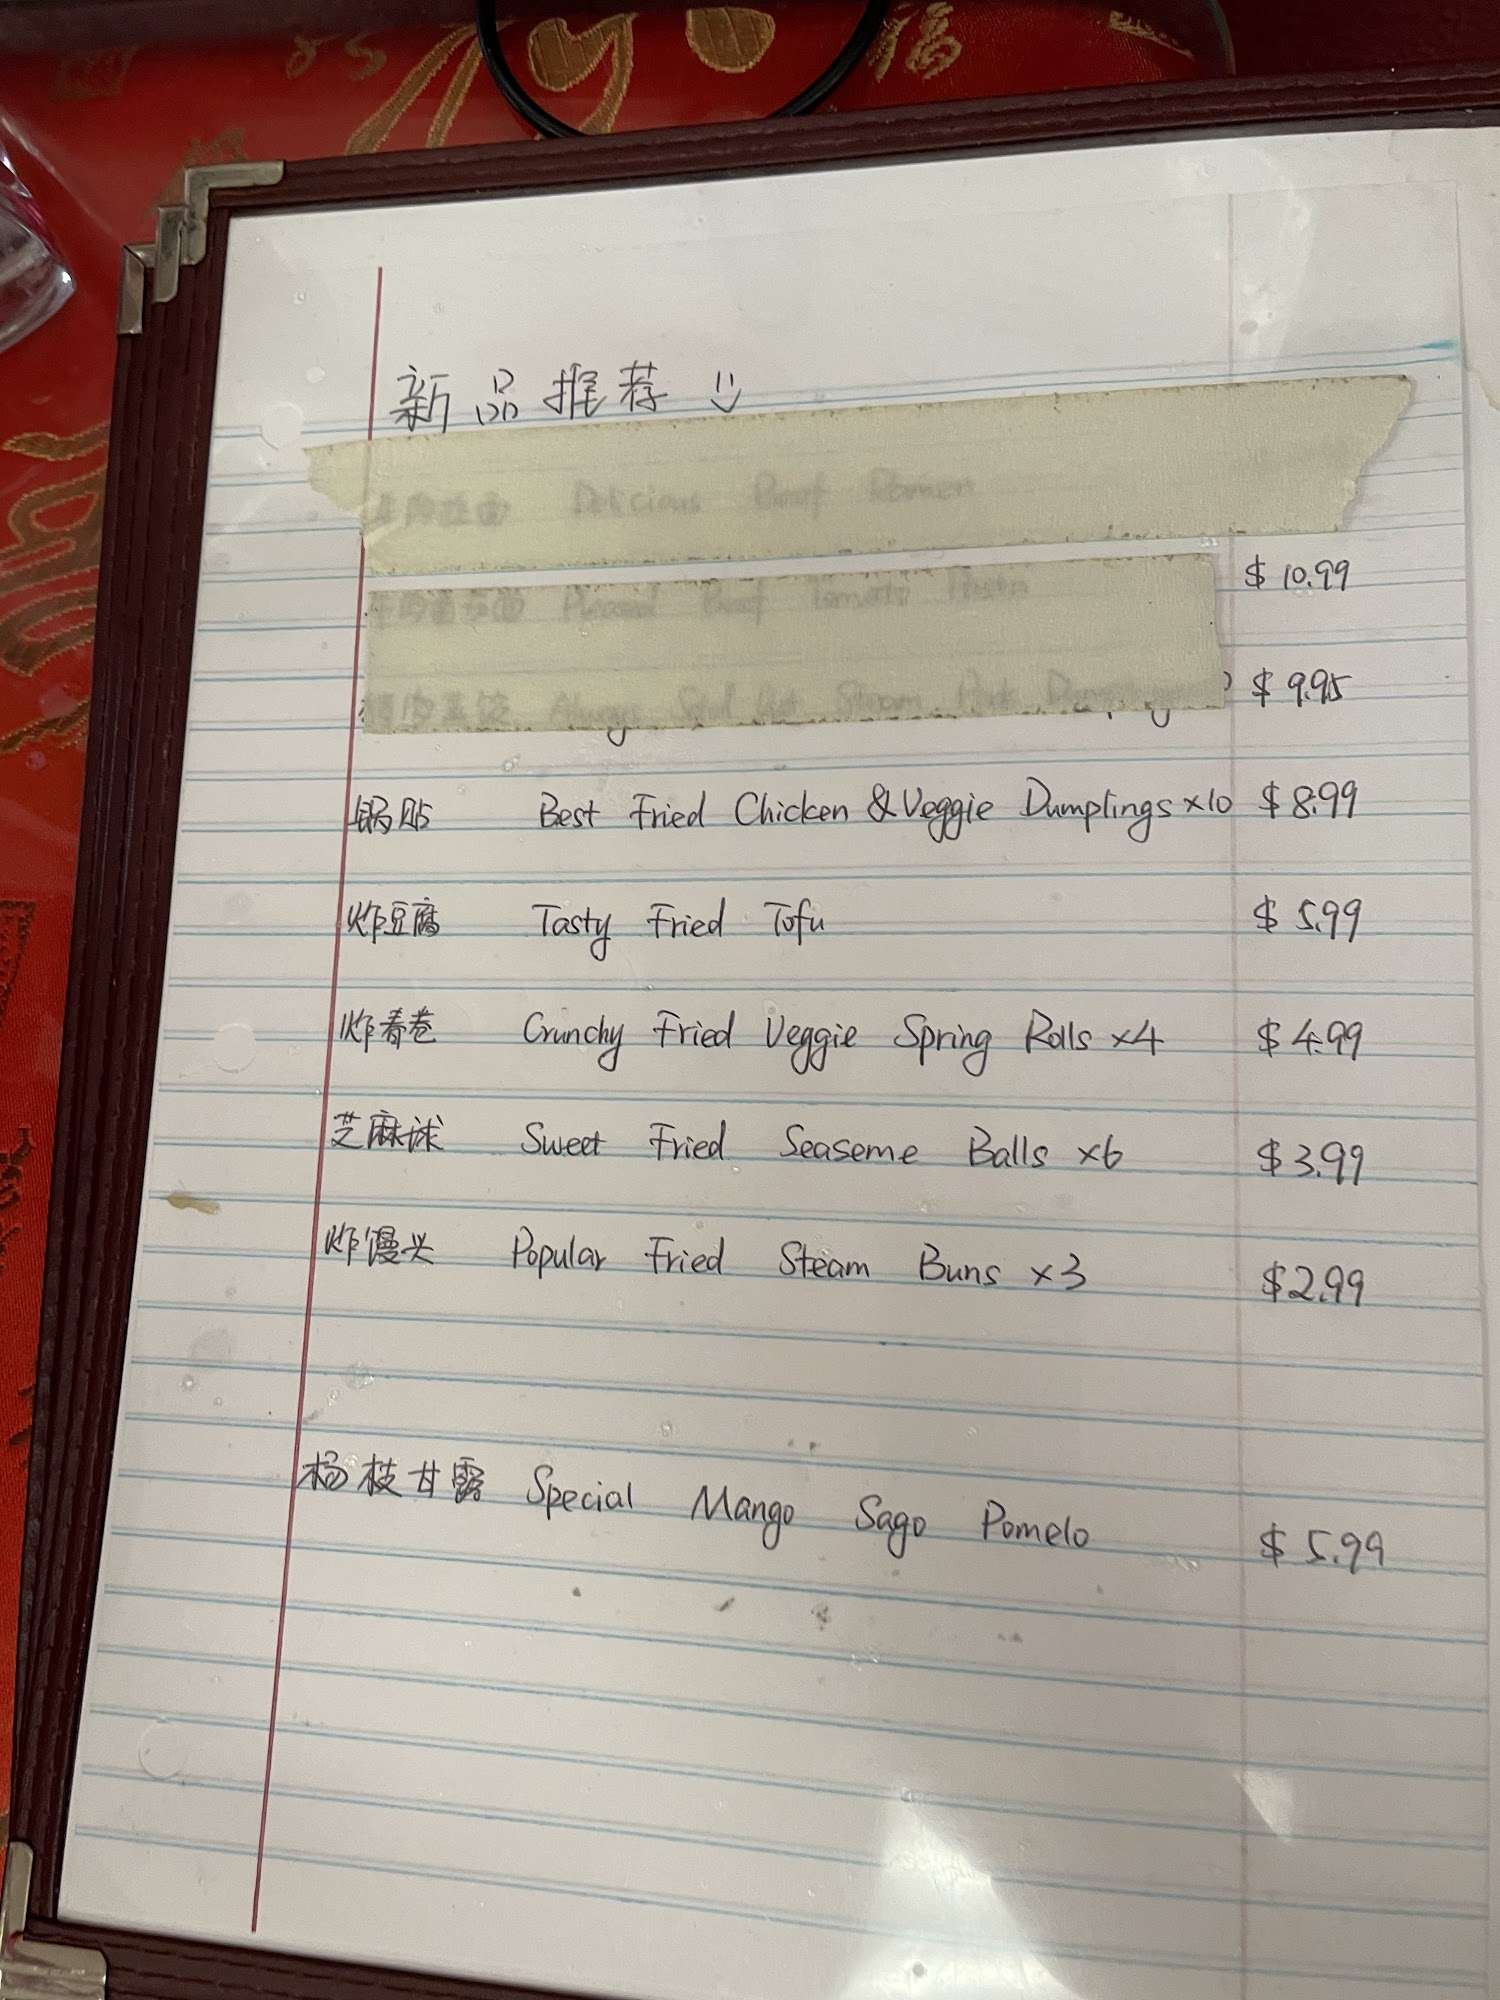 福
新品推荐
Delicious Beef Ramen
Beef Tomato Pasta $ 10.99
Steam Pork Dumplings $ 9.95
锅贴 Best Fried Chicken & Veggie Dumplings x10 $ 8.99
炸豆腐 Tasty Fried Tofu $ 5.99
炸春卷 Crunchy Fried Veggie Spring Rolls x4 $ 4.99
芝麻球 Sweet Fried Seaseme Balls x6 $ 3.99
炸馒头 Popular Fried Steam Buns x3 $ 2.99
杨枝甘露 Special Mango Sago Pomelo $ 5.99